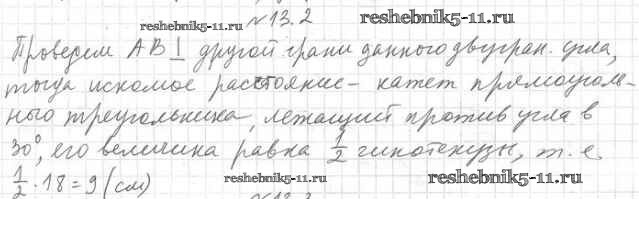 №13.2
reshebnik5-11.ru reshebnik5-11.ru
Проведем AB ⊥ другой грани данного двугран. угла,
тогда искомое расстояние – катет прямоуголь-
ного треугольника, лежащий против угла в
30°, его величина равна 1/2 гипотенузы, т.е.
1/2 · 18 = 9 (см)
reshebnik5-11.ru reshebnik5-11.ru